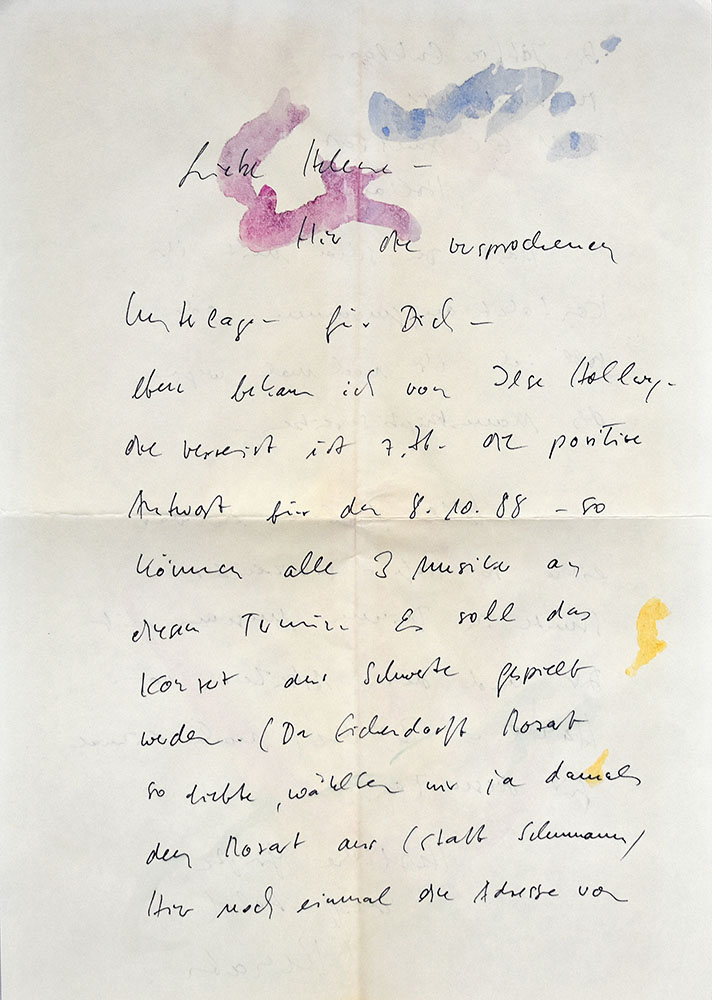 Liebe Helene –
Hier die versprochenen
Unterlagen für Dich –
eben bekam ich von Ilse
die verreist ist z. Zt. die positive
Antwort für den 8.10.88 – so
können alle 3 Musiker an
diesem Termin. Es soll das
Konzert der Schwerte gespielt
werden. (Da Eichendorff Mozart
so liebte, wählten wir ja damals
den Mozart aus (statt Schumann)
Hier noch einmal die Adresse von